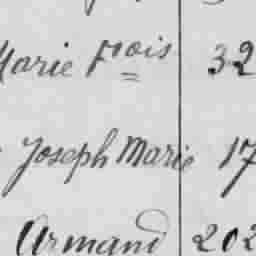 Marie Frois 32
Joseph Marie 17
Armand 202